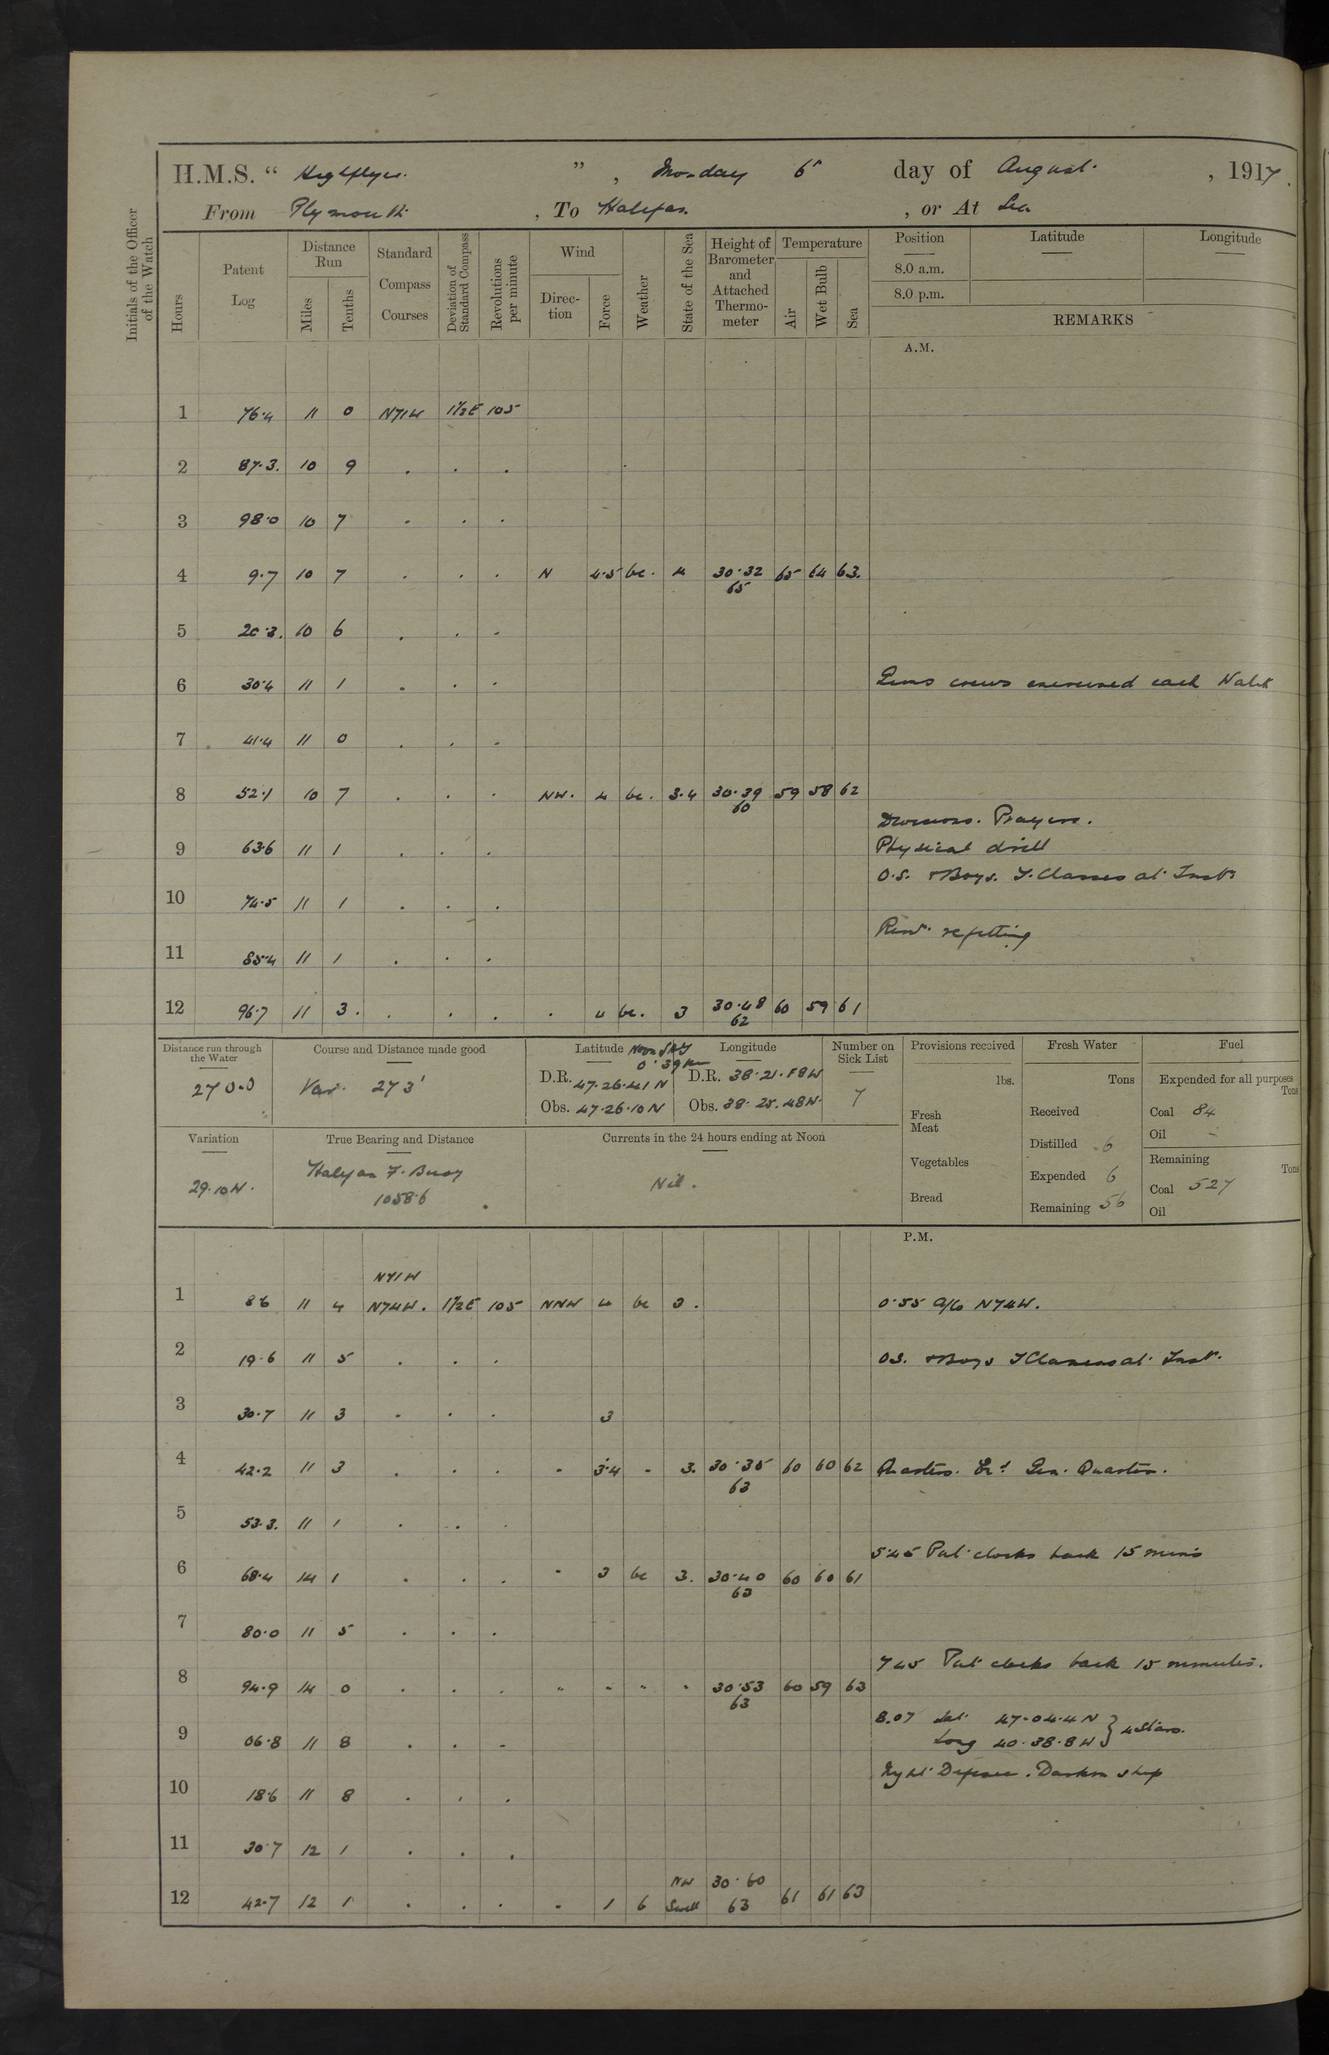 H.M.S. “ Highflyer. ” , Monday 6th day of August , 1917.
From Plymouth , To Halifax , or At Sea
Initials of the Officer of the Watch
Hours
Patent Log
Distance Run
Miles
Tenths
Standard Compass Courses
Deviation of Standard Compass
Revolutions per minute
Wind
Direc-tion
Force
Weather
State of the Sea
Height of Barometer and Attached Thermo-meter
Temperature
Air
Wet Bulb
Sea
Position
Latitude
Longitude
8.0 a.m.
8.0 p.m.
REMARKS
A.M.
1 76.4 11 0 N71W 1½E 105
2 87.3. 10 9 . . .
3 98.0 10 7 . . .
4 9.7 10 7 . . . N 4.5 bc. 4 30.32 65 65 64 63.
5 20.3. 10 6 . . .
6 30.4 11 1 . . . Guns crews exercised each Watch
7 41.4 11 0 . . .
8 52.1 10 7 . . . NW. 4 bc. 3.4 30.39 60 59 58 62
Divisions. Prayers.
9 63.6 11 1 . . . Physical drill
O.S. & Boys. T. Classes at Inst.
10 74.5 11 1 . . .
refitting
11 85.4 11 1 . . .
12 96.7 11 3. . . . . 4 bc. 3 30.48 62 60 59 61
Distance run through the Water
270.0
Course and Distance made good
Var. 273'
Latitude
Longitude
D.R. 47.26.41 N
D.R. 38.21.58W
Obs. 47.26.10 N
Obs. 38.25.48W.
Number on Sick List
7
Provisions received
lbs.
Fresh Meat
Vegetables
Bread
Fresh Water
Tons
Received
Distilled 6
Expended 6
Remaining 56
Fuel
Expended for all purposes
Tons
Coal 84
Oil -
Remaining
Tons
Coal 527
Oil
Variation
29.10W.
True Bearing and Distance
Halifax F. Buoy
1058.6
Currents in the 24 hours ending at Noon
Nil.
P.M.
N71W
1 8.6 11 4 N74W. 1½E 105 NNW 4 bc 3. 0.55 a/c N74W.
2 19.6 11 5 . . . OS. & Boys T Classes at Inst.
3 30.7 11 3 . . . 3
4 42.2 11 3 . . . . 3.4 - 3. 30.35 63 60 60 62 Quarters. Gen. Quarters.
5 53.3. 11 1 . . .
5.45 Put clocks back 15 mins
6 68.4 14 1 . . . " 3 bc 3. 30.40 63 60 60 61
7 80.0 11 5 . . .
7.45 Put clocks back 15 minutes.
8 94.9 14 0 . . . " " " " 30.53 63 60 59 63
8.07 Lat 47.04.4 N
Long 40.38.8W } 4 Stars.
9 06.8 11 8 . . .
Night Defence. Darken ship
10 18.6 11 8 . . .
11 30.7 12 1 . . .
12 42.7 12 1 . . . . 1 b NW Swell 30.60 63 61 61 63